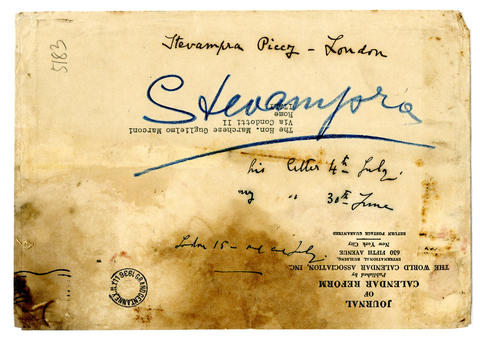 5183
Stevampra – London
Stevampra
The Hon. Marchese Guglielmo Marconi
Via Condotti II
Rome
his letter 4th July.
my " 30th June
London 15 – July
JOURNAL
OF
CALENDAR REFORM
Published by
THE WORLD CALENDAR ASSOCIATION, INC.
INTERNATIONAL BUILDING,
630 FIFTH AVENUE
New York City
RETURN POSTAGE GUARANTEED
1936